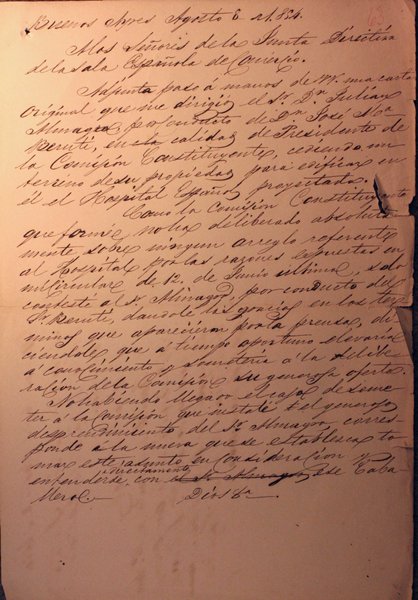 Buenos Ayres Agosto 6 de 1854.
A los Señores de la Junta Directiva
de la Sala Española de Comercio.
Adjunta paso á manos de VV. una carta
original que me dirigió el Sr. Dn. Julián
Almagro, por conducto de Dn. José Ma.
Beruti, en calidad de Presidente de
la Comisión Constituyente, cediendo un
terreno de su propiedad para edificar en
él el Hospital Español proyectado.
Como la Comisión Constituyente
que formé no ha deliberado absoluta-
mente sobre ningun arreglo referente
al Hospital por las razones espuestas en
mi Circular de 12, de Junio ultimo, solo
contesté al Sr. Almagro, por conducto del
Sr. Beruti, dandole las gracias en los ter-
minos que aparecieron por la prensa, di-
ciendole, que a tiempo oportuno elevaria
á conocimiento y sometería á la delibe-
racion de la Comision su generosa oferta.
No habiendo llegado el caso de some-
ter á la Comision que instalé el generoso
desprendimiento del Sr. Almagro, corres-
ponde á la nueva que se establezca to-
mar este asunto en consideracion y
entenderse directamente con el Sr. Almagro ese Caba-
llero.
Dios &a